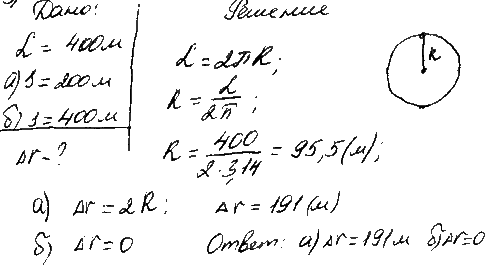 Дано:
L = 400м
а) S = 200м
б) S = 400м
Δr - ?
Решение
L = 2πR;
R = L / 2π;
R = 400 / 2·3,14 = 95,5 (м);
R
а) Δr = 2R; Δr = 191 (м)
б) Δr = 0 Ответ: а) Δr = 191м б) Δr = 0